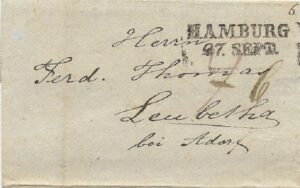 6
HAMBURG
27. SEPT.
Herrn
Ferd. Thomas
Leubetha
bei Adorf